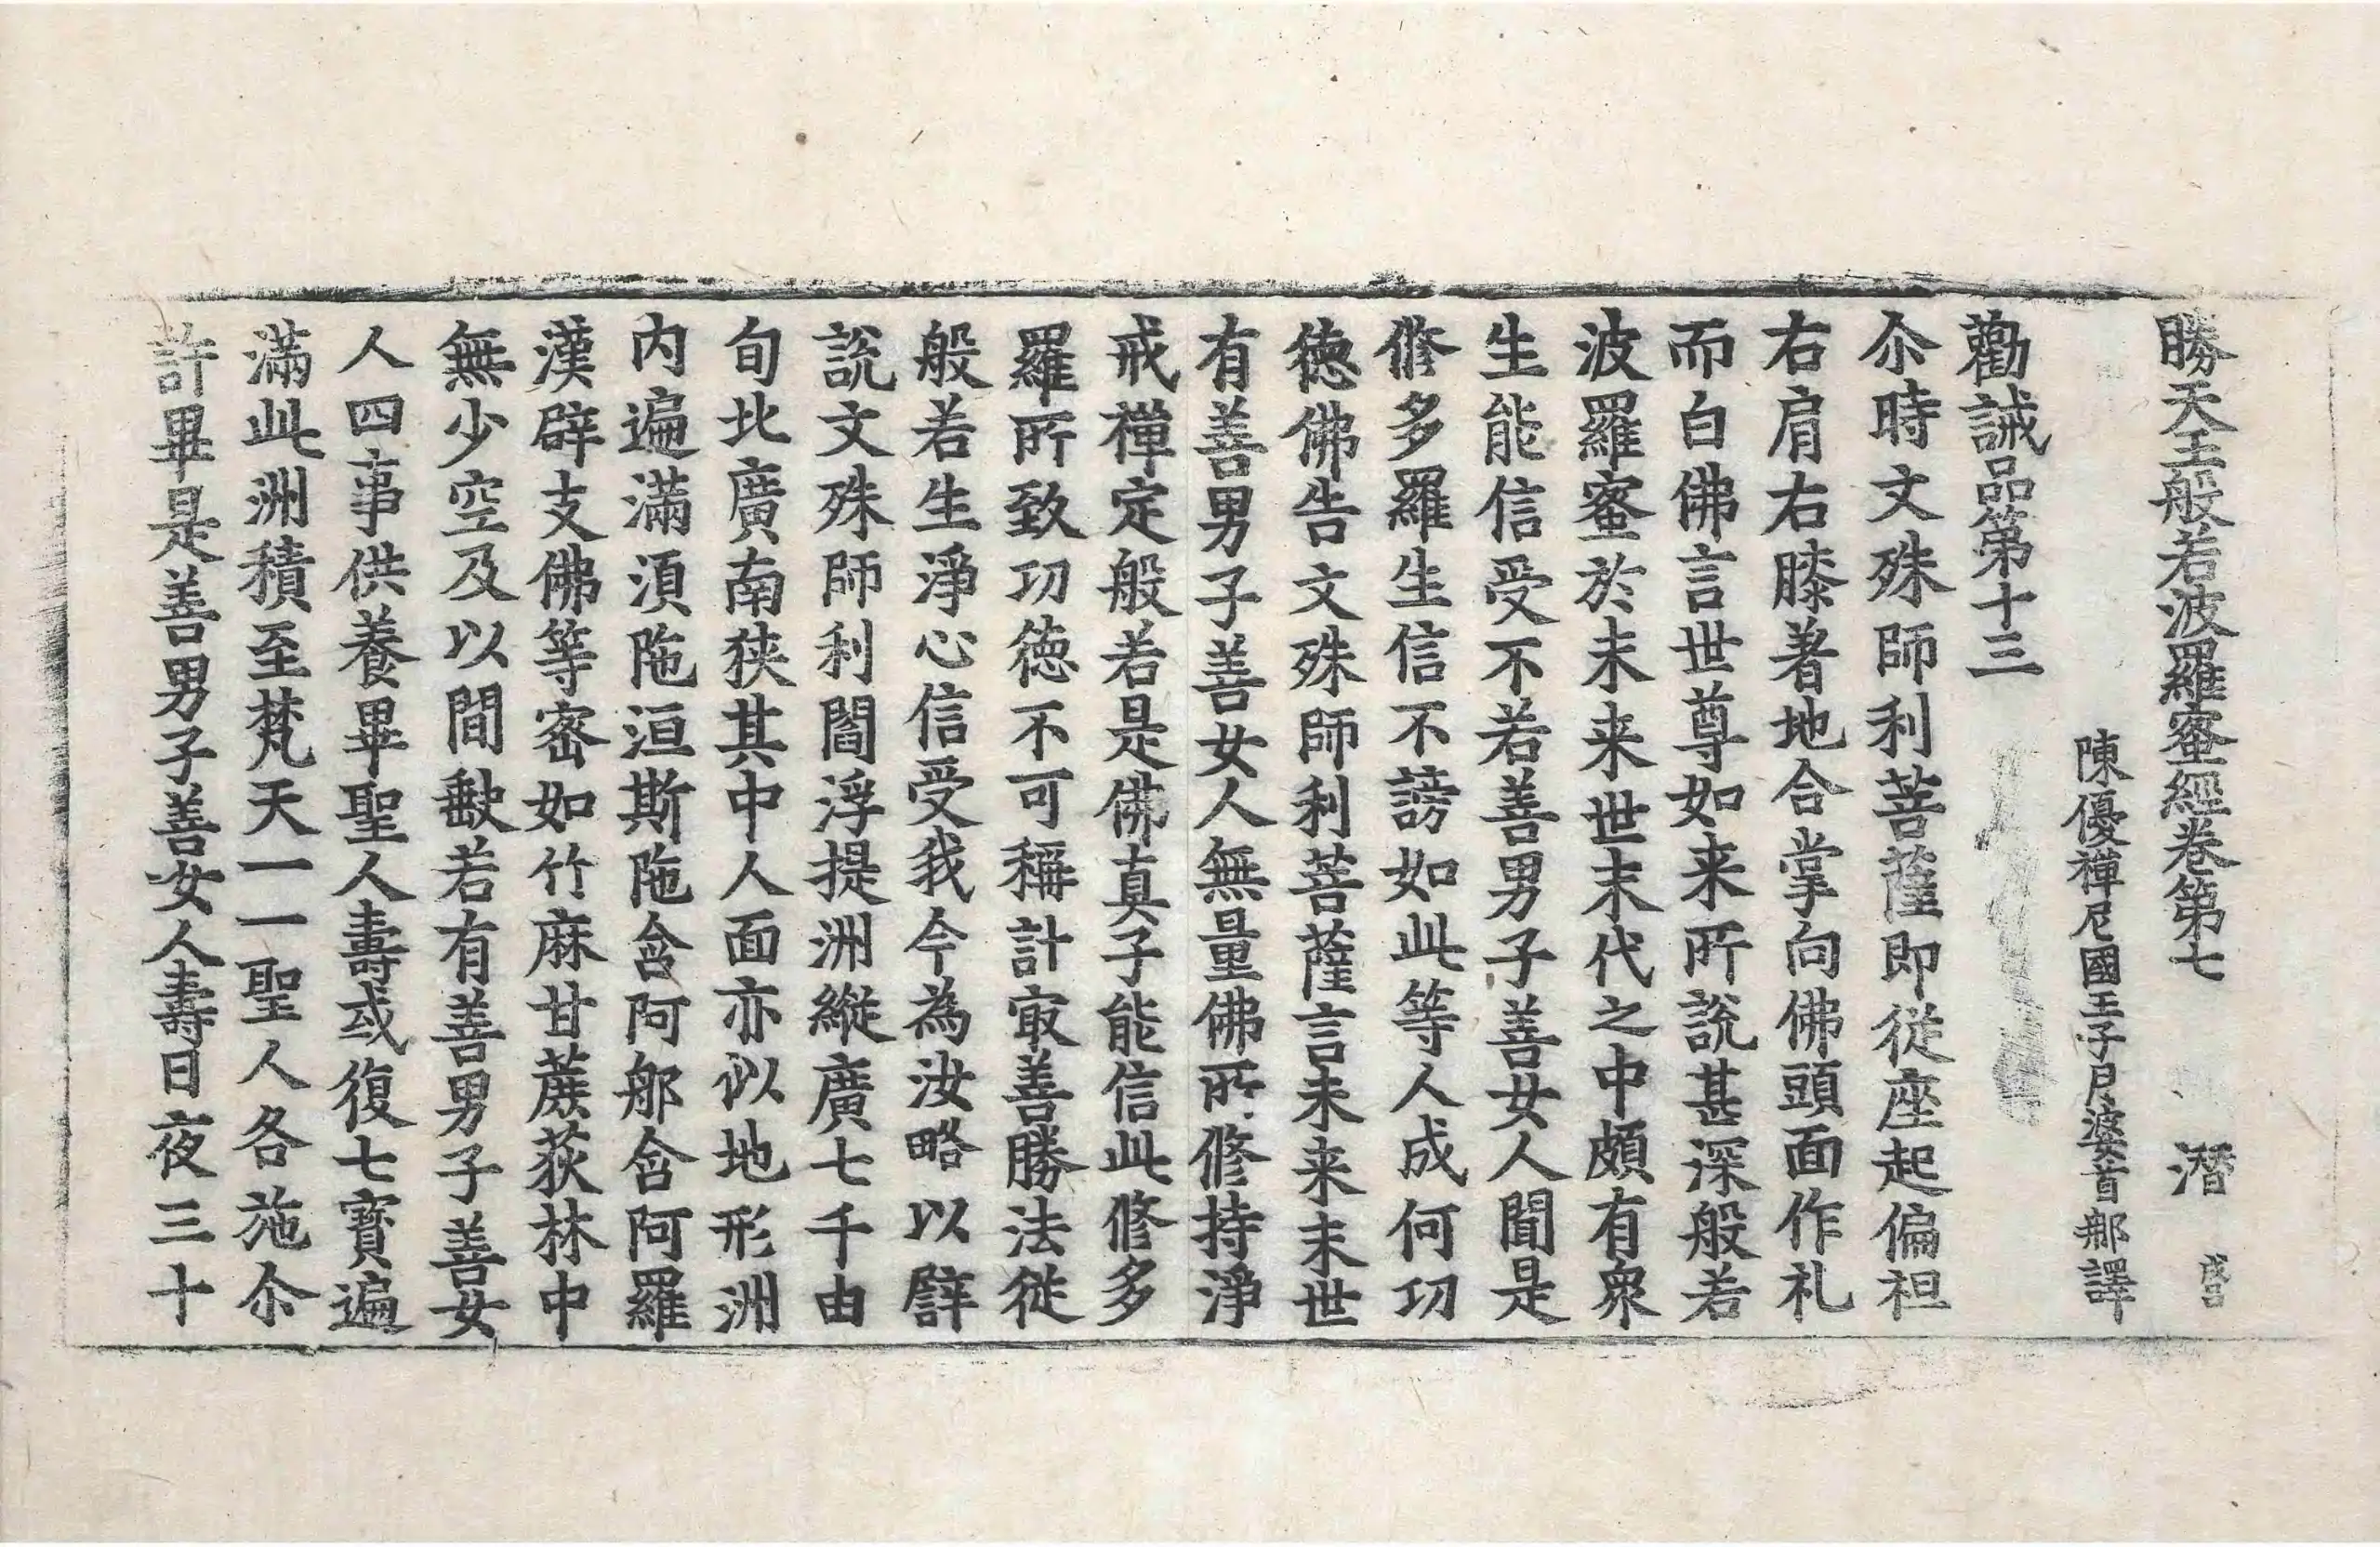 勝天王般若波羅蜜經卷第七 潛
陳優禪尼國王子月婆首那譯
勸誡品第十三
尒時文殊師利菩薩即從座起偏袒
右肩右膝著地合掌向佛頭面作礼
而白佛言世尊如来所說甚深般若
波羅蜜於未来世末代之中頗有衆
生能信受不若善男子善女人聞是
修多羅生信不謗如此等人成何功
德佛告文殊師利菩薩言未来末世
有善男子善女人無量佛所修持淨
戒禪定般若是佛真子能信此修多
羅所致功德不可稱計㝡善勝法從
般若生淨心信受我今為汝略以譬
說文殊師利閻浮提洲縱廣七千由
旬北廣南狹其中人面亦似地形洲
内遍滿湏陁洹斯陁含阿那含阿羅
漢辟支佛等宻如竹麻甘蔗荻林中
無少空及以間㱁若有善男子善女
人四事供養畢聖人壽或復七寶遍
滿此洲積至梵天一一聖人各施尒
許畢是善男子善女人壽日夜三十